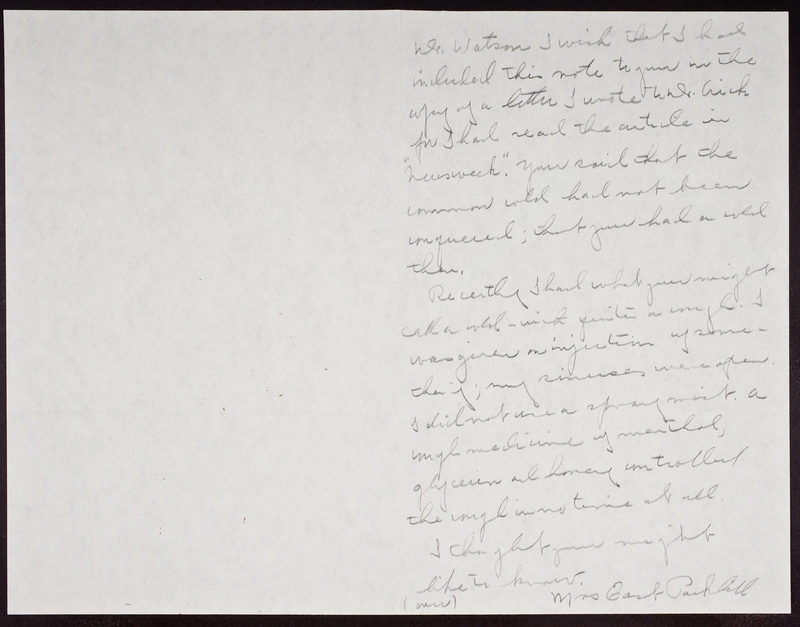 Dr. Watson I wish that I had
included this note to you in the
copy of a letter I wrote to Dr. Crick
for I had read the article in
"Newsweek". You said that the
common cold had not been
conquered; that you had a cold
then.
Recently I had what you might
call a cold - with quite a cough. I
was given an injection of some-
thing; my sinuses were open.
I did not use a spray mist. A
cough medicine of menthol,
glycerin and honey controlled
the cough in no time at all.
I thought you might
like to know.
(over) Mrs East